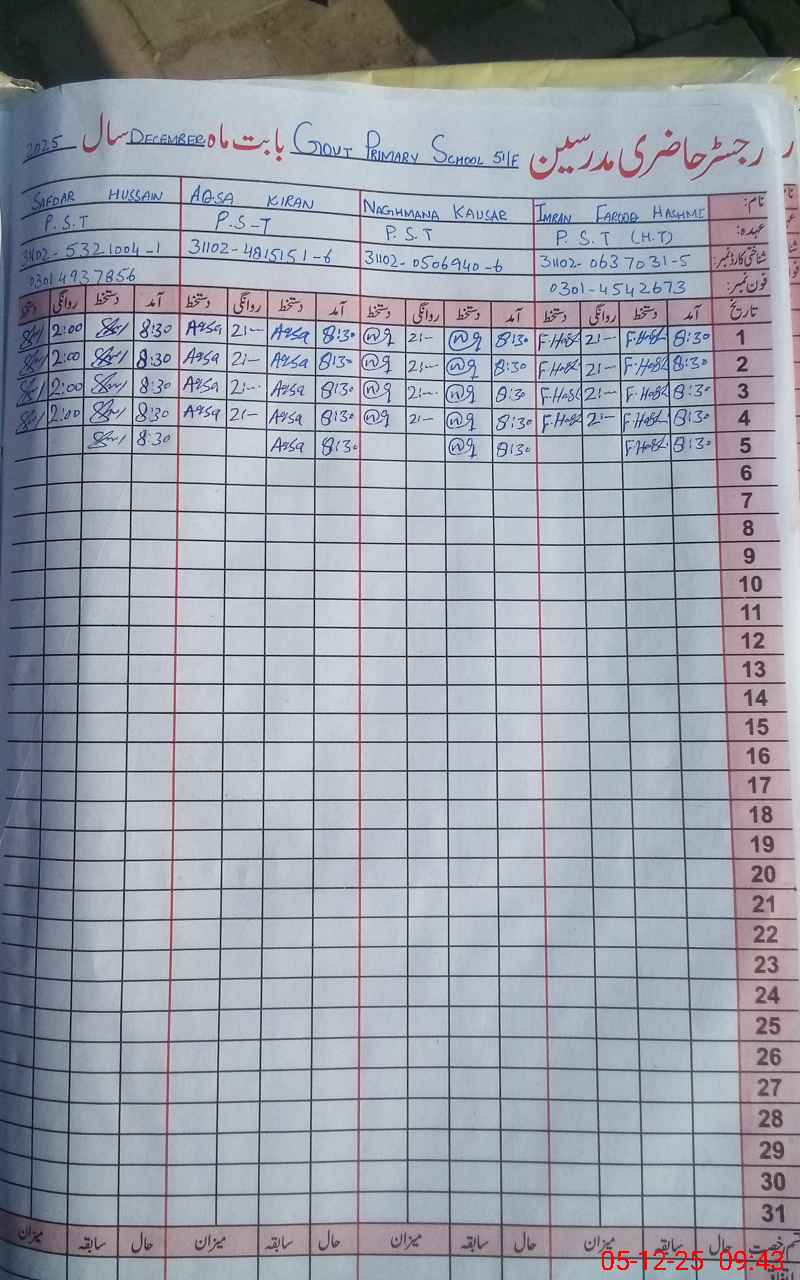 رجسٹر حاضری مدرسین GOVT PRIMARY SCHOOL 51/F بابت ماہ DECEMBER سال 2025
نام: IMRAN FAROOQ HASHMI NAGHMANA KAUSAR AQSA KIRAN SAFDAR HUSSAIN
عہدہ: P.S.T (H.T) P.S.T P.S-T P.S.T
شناختی کارڈ نمبر: 31102-0637031-5 31102-0506940-6 31102-4815151-6 31102-5321004-1
فون نمبر: 0301-4542673 03014937856
تاریخ آمد دستخط روانگی دستخط آمد دستخط روانگی دستخط آمد دستخط روانگی دستخط آمد دستخط روانگی دستخط
1 8:30 F.Hash 21- 8:30 21- 8:30 Aqsa 21- Aqsa 8:30 2:00
2 8:30 F.Hash 21- F.Hash 8:30 21- 8:30 Aqsa 21- Aqsa 8:30 2:00
3 8:30 F.Hash 21- F.Hash 8:30 21- 8:30 Aqsa 21- Aqsa 8:30 2:00
4 8:30 F.Hash 21- F.Hash 8:30 21- 8:30 Aqsa 21- Aqsa 8:30 2:00
5 8:30 F.Hash 8:30 8:30 Aqsa 8:30
6
7
8
9
10
11
12
13
14
15
16
17
18
19
20
21
22
23
24
25
26
27
28
29
30
31
رخصت حال سابقہ میزان حال سابقہ میزان حال سابقہ میزان حال سابقہ میزان
05-12-25 09:43